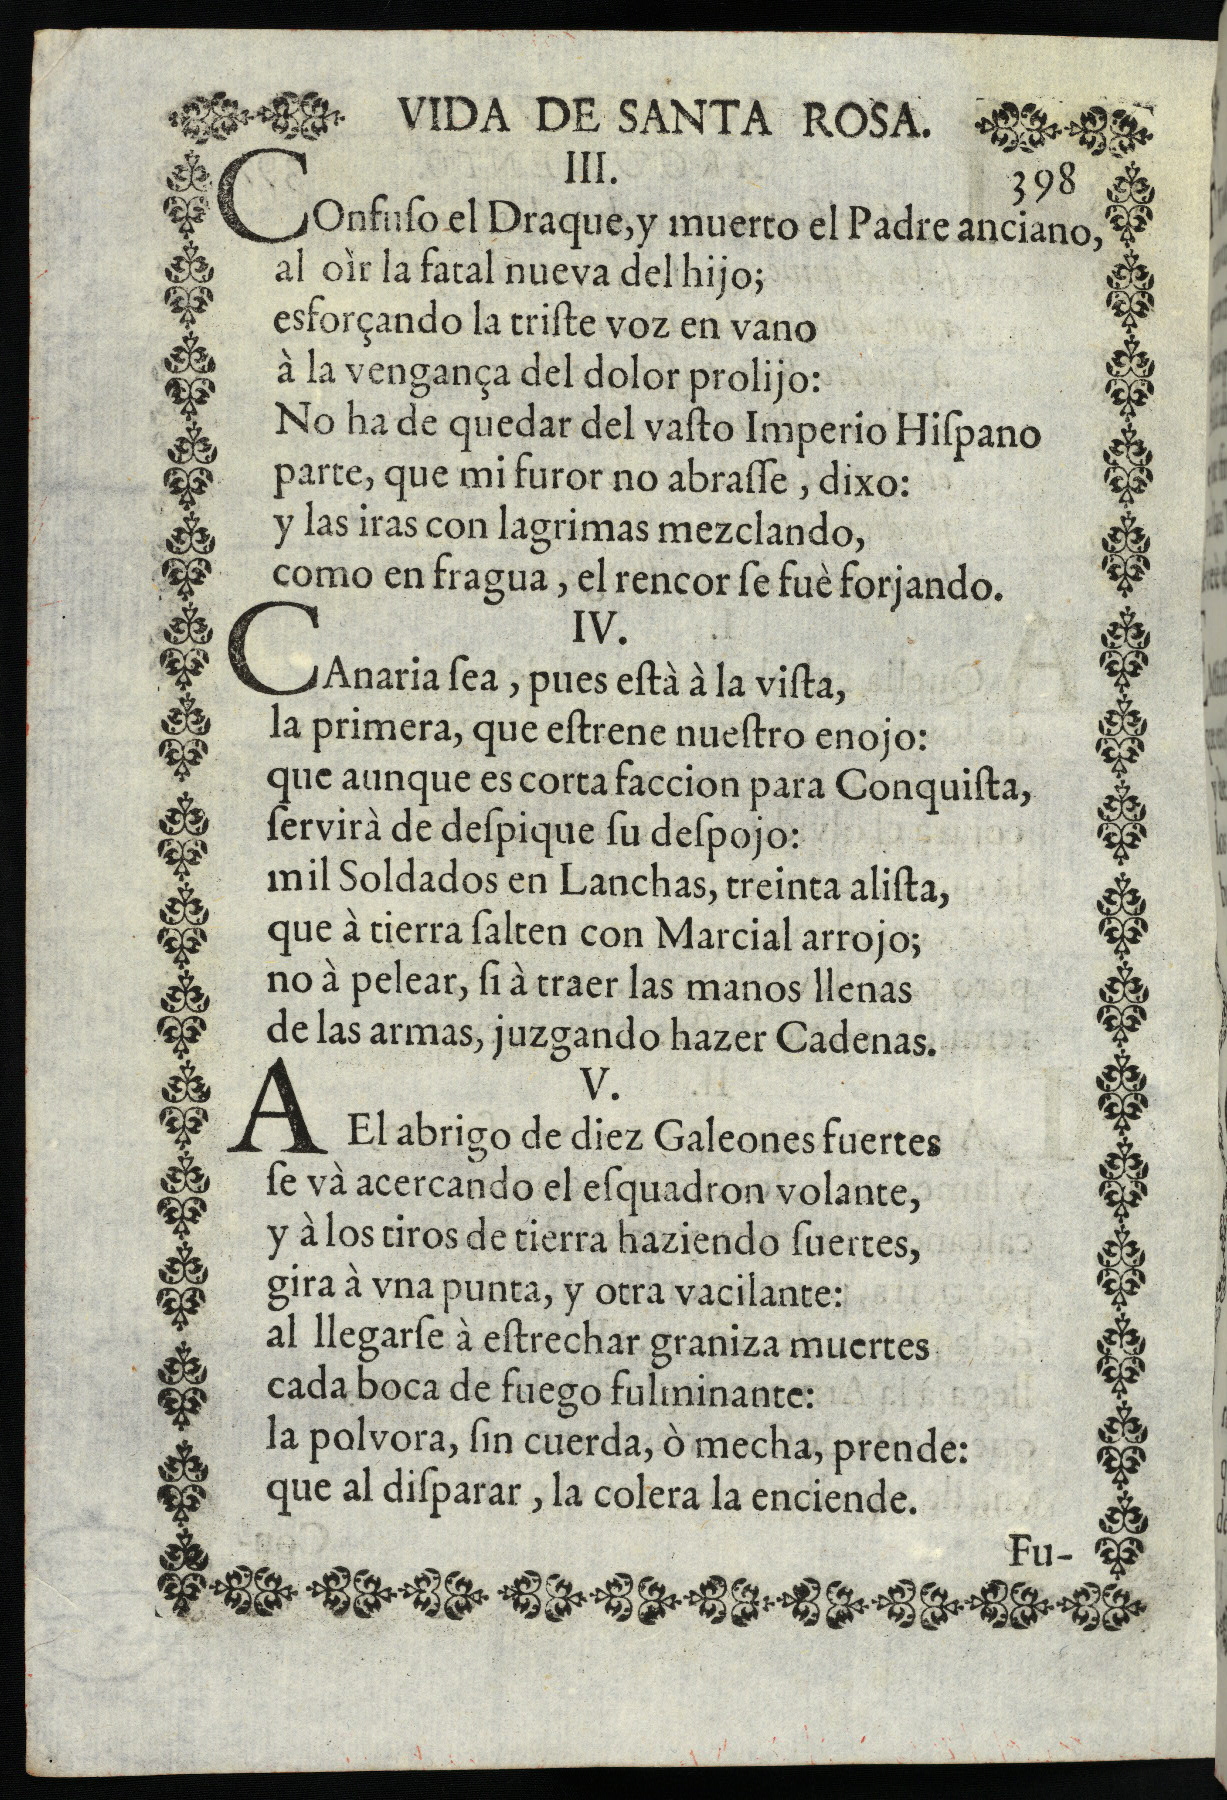 VIDA DE SANTA ROSA.
398
III.
COnfuſo el Draque, y muerto el Padre anciano,
al oìr la fatal nueva del hijo;
esforçando la triſte voz en vano
à la vengança del dolor prolijo:
No ha de quedar del vaſto Imperio Hiſpano
parte, que mi furor no abraſſe, dixo:
y las iras con lagrimas mezclando,
como en fragua, el rencor ſe fuè forjando.
IV.
CAnaria ſea, pues eſtà à la viſta,
la primera, que eſtrene nueſtro enojo:
que aunque es corta faccion para Conquiſta,
ſervirà de deſpique ſu deſpojo:
mil Soldados en Lanchas, treinta aliſta,
que à tierra ſalten con Marcial arrojo;
no à pelear, ſi à traer las manos llenas
de las armas, juzgando hazer Cadenas.
V.
A El abrigo de diez Galeones fuertes
ſe và acercando el eſquadron volante,
y à los tiros de tierra haziendo ſuertes,
gira à vna punta, y otra vacilante:
al llegarſe à eſtrechar graniza muertes
cada boca de fuego fulminante:
la polvora, ſin cuerda, ò mecha, prende:
que al diſparar, la colera la enciende.
Fu-